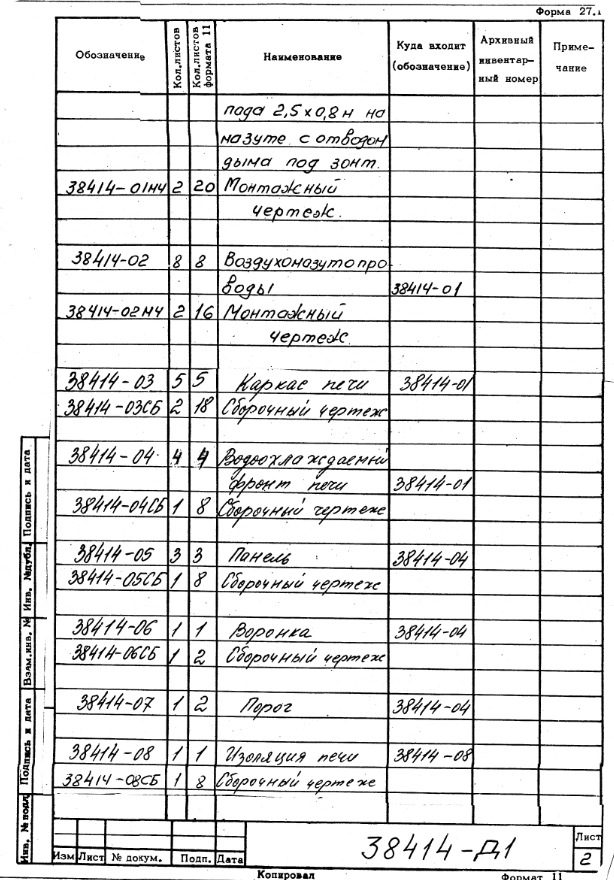 Форма 27.1
Обозначение Кол.листов Кол.листов формата 11 Наименование Куда входит (обозначение) Архивный инвентарный номер Примечание
пода 2,5×0,8м на
мазуте с отводом
дыма под зонт.
38414-01МЧ 2 20 Монтажный
чертеж.
38414-02 8 8 Воздухомазутопро-
воды 38414-01
38414-02МЧ 2 16 Монтажный
чертеж.
38414-03 5 5 Каркас печи 38414-01
38414-03СБ 2 18 Сборочный чертеж
38414-04 4 4 Водоохлаждаемый
фронт печи 38414-01
38414-04СБ 1 8 Сборочный чертеж
38414-05 3 3 Панель 38414-04
38414-05СБ 1 8 Сборочный чертеж
38414-06 1 1 Воронка 38414-04
38414-06СБ 1 2 Сборочный чертеж
38414-07 1 2 Порог 38414-04
38414-08 1 1 Изоляция печи 38414-08
38414-08СБ 1 8 Сборочный чертеж
Инв. № подл Подпись и дата Взам.инв. № Инв. №дубл. Подпись и дата
38414-Д1
Лист
2
Изм Лист № докум. Подп. Дата
Копировал Формат 11